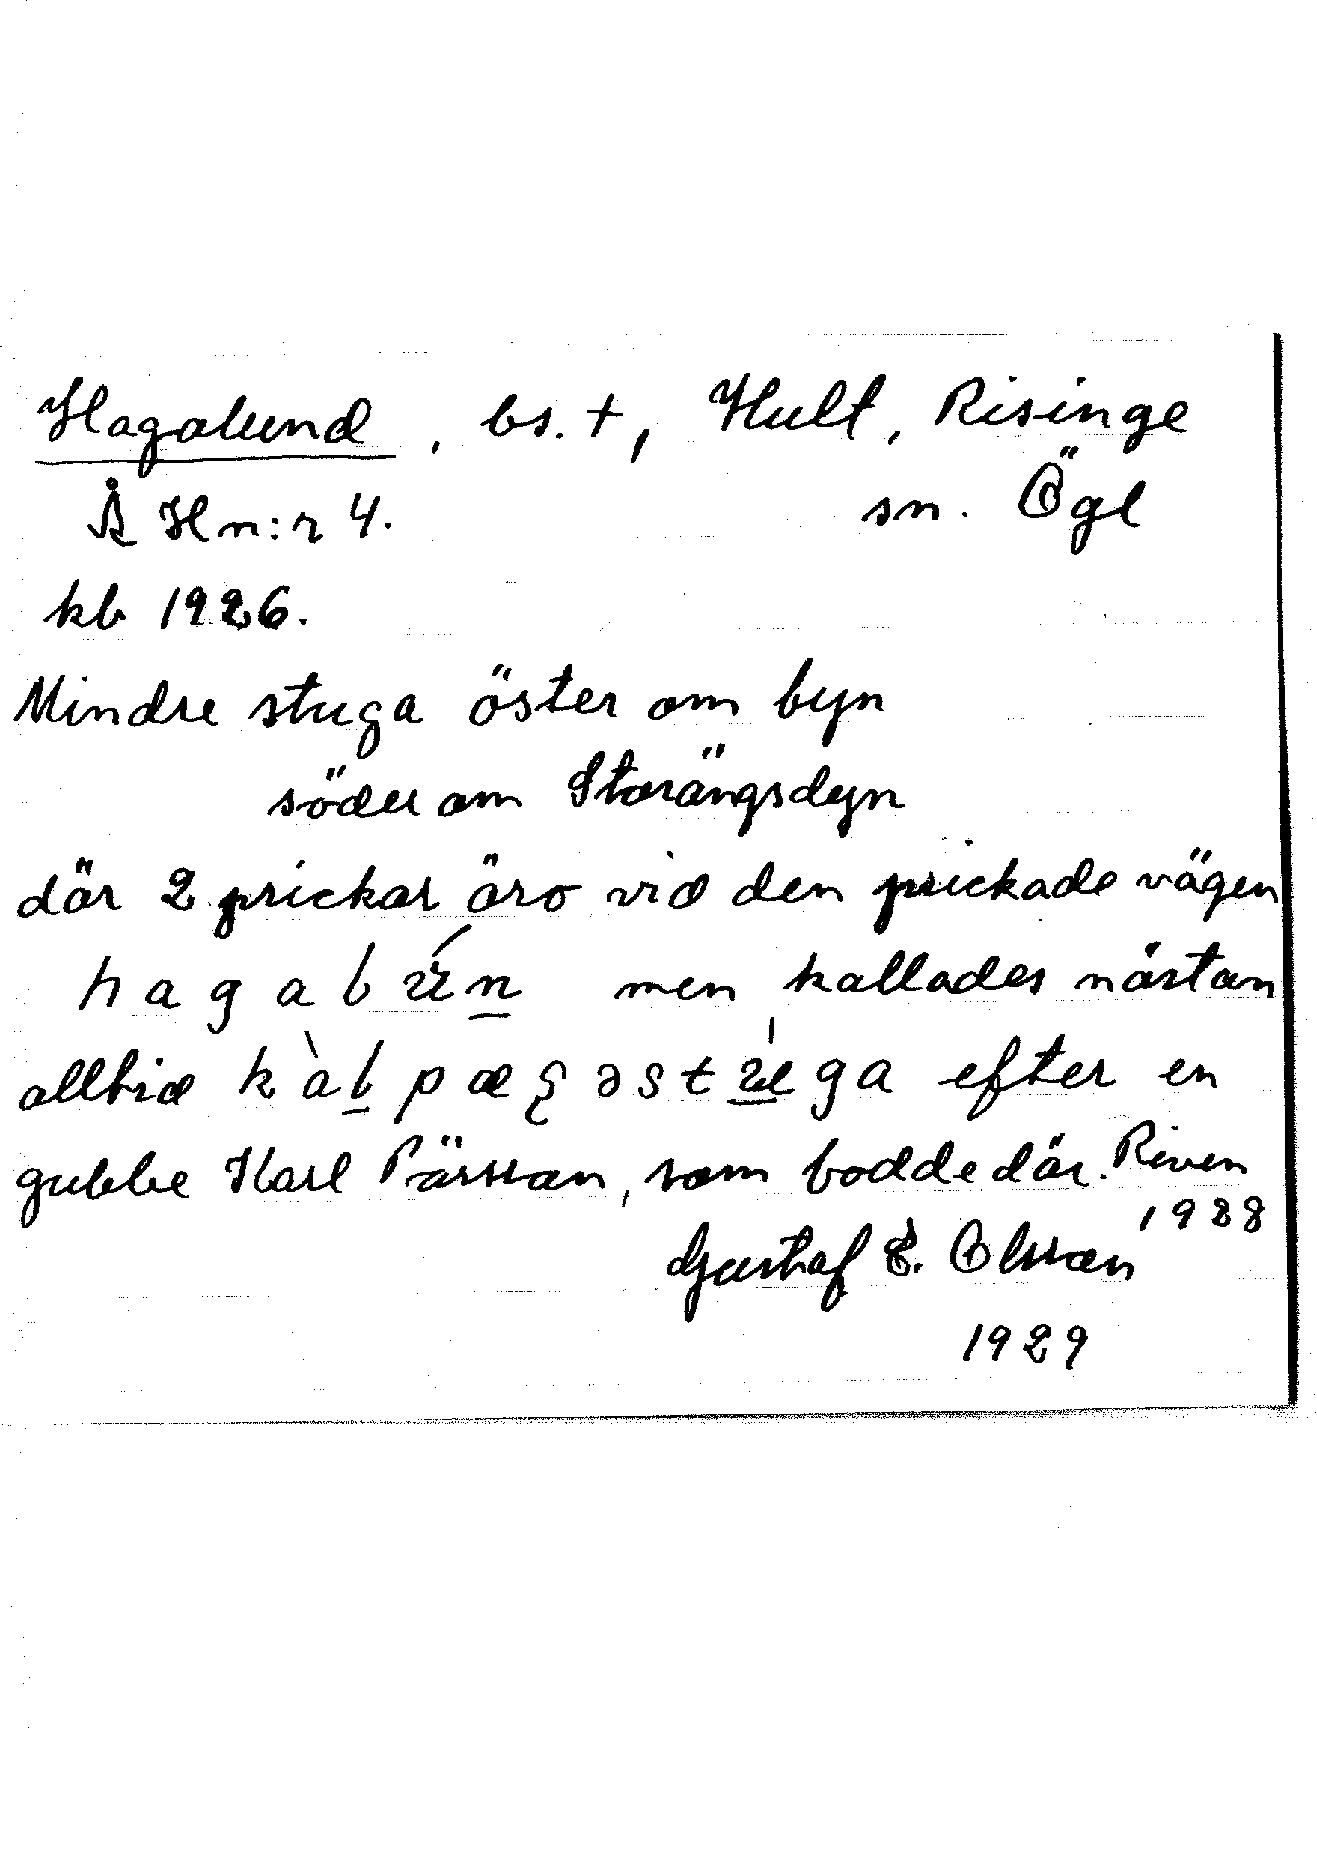 Hagalund, bs. †, Hult, Risinge
Å H n:r 4. sn. Ögl
kb 1926.
Mindre stuga öster om byn
söder om Storängsdyn
där 2 prickar äro vid den prickade vägen
men kallades nästan
alltid efter en
gubbe Karl Pärsson, som bodde där. Reven
1928
Gustaf E. Olsson
1929